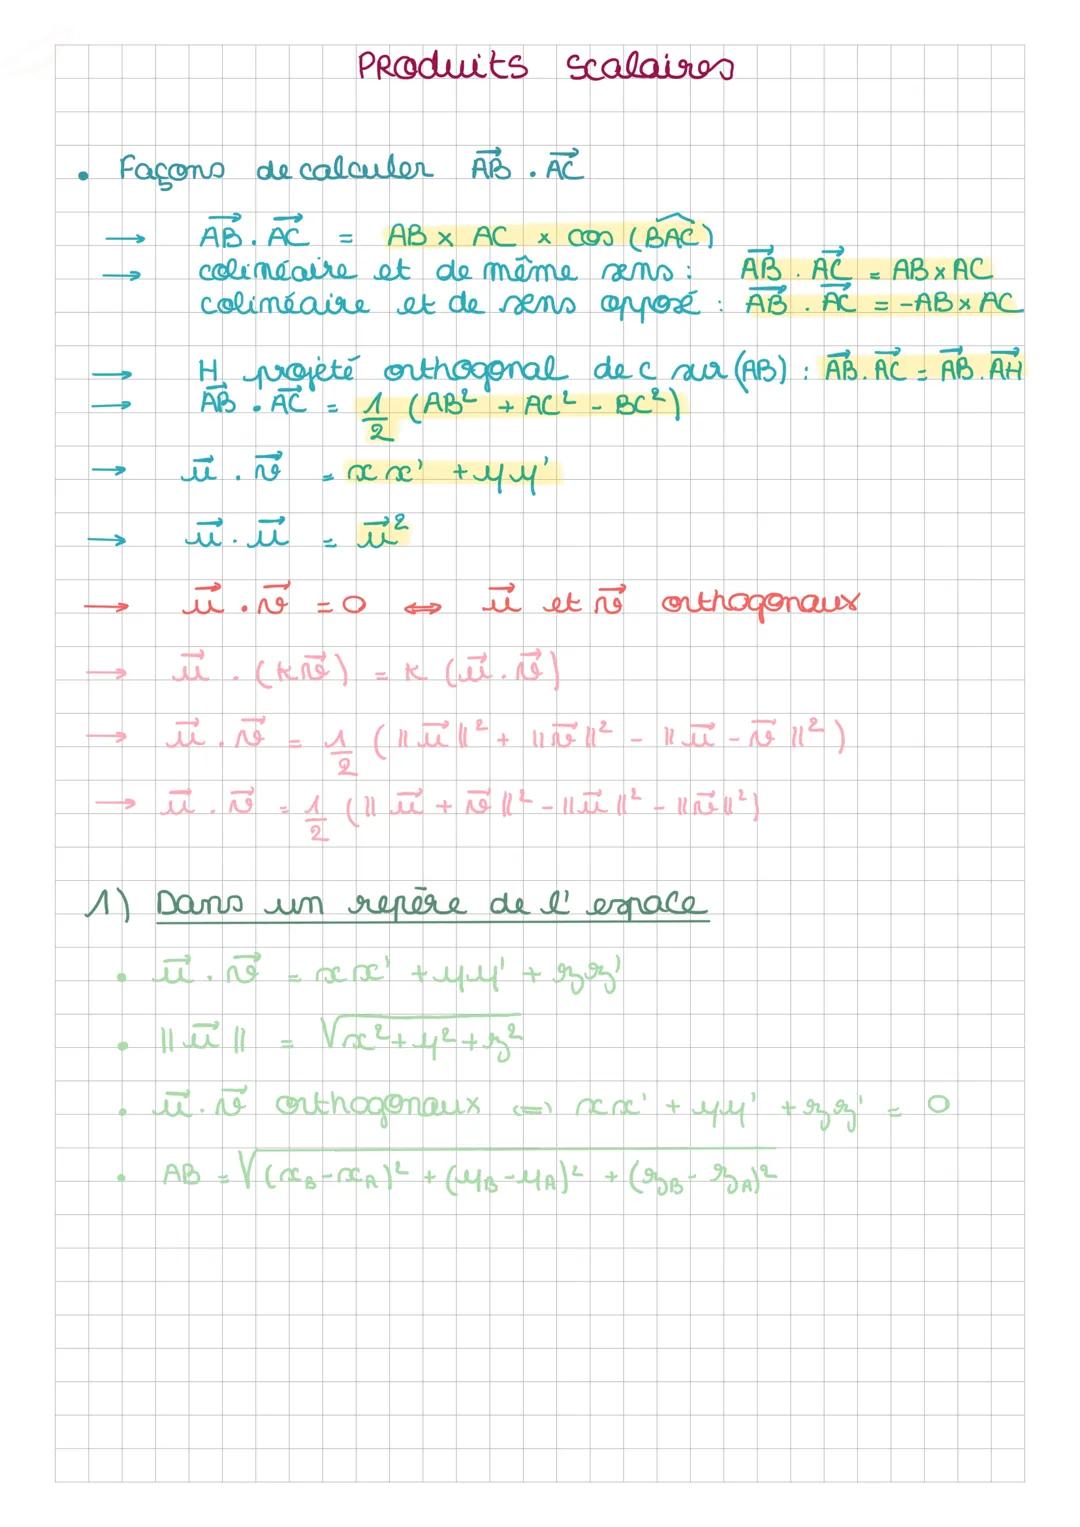 Produits scalaires
• Façons de calculer $\overrightarrow{AB} . \overrightarrow{AC}$
→ $\overrightarrow{AB} . \overrightarrow{AC} = AB \times AC \times \cos(\widehat{BAC})$
→ colinéaire et de même sens : $\overrightarrow{AB} . \overrightarrow{AC} = AB \times AC$
colinéaire et de sens opposé : $\overrightarrow{AB} . \overrightarrow{AC} = -AB \times AC$
→ H projeté orthogonal de c sur (AB) : $\overrightarrow{AB} . \overrightarrow{AC} = \overrightarrow{AB} . \overrightarrow{AH}$
→ $\overrightarrow{AB} . \overrightarrow{AC} = \frac{1}{2} (AB^2 + AC^2 - BC^2)$
→ $\vec{u} . \vec{v} = xx' + yy'$
→ $\vec{u} . \vec{u} = \vec{u}^2$
→ $\vec{u} . \vec{v} = 0$ ⇔ $\vec{u}$ et $\vec{v}$ orthogonaux
→ $\vec{u} . (k\vec{v}) = k (\vec{u} . \vec{v})$
→ $\vec{u} . \vec{v} = \frac{1}{2} (\|\vec{u}\|^2 + \|\vec{v}\|^2 - \|\vec{u} - \vec{v}\|^2)$
→ $\vec{u} . \vec{v} = \frac{1}{2} (\|\vec{u} + \vec{v}\|^2 - \|\vec{u}\|^2 - \|\vec{v}\|^2)$
1) Dans un repère de l'espace
• $\vec{u} . \vec{v} = xx' + yy' + zz'$
• $\|\vec{u}\| = \sqrt{x^2 + y^2 + z^2}$
• $\vec{u} . \vec{v}$ orthogonaux ⇔ $xx' + yy' + zz' = 0$
• $AB = \sqrt{(x_B - x_A)^2 + (y_B - y_A)^2 + (z_B - z_A)^2}$